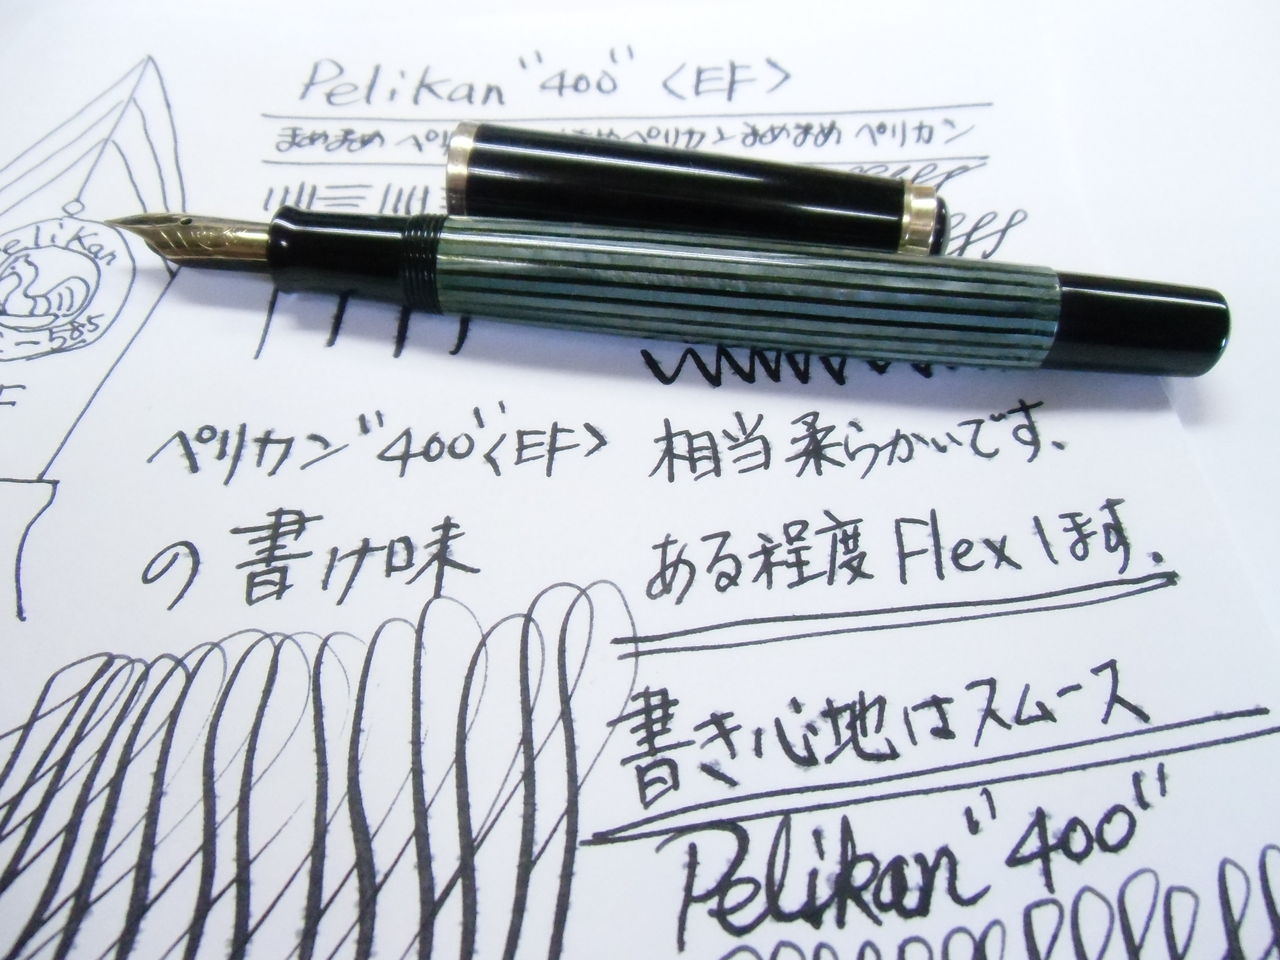 Pelikan "400" <EF>
まめまめ ペリ ペリカン まめまめ ペリカン
Pelikan
585
ペリカン "400" <EF>
の書け味
相当柔らかいです、
ある程度Flexします.
書き心地はスムース
Pelikan "400"